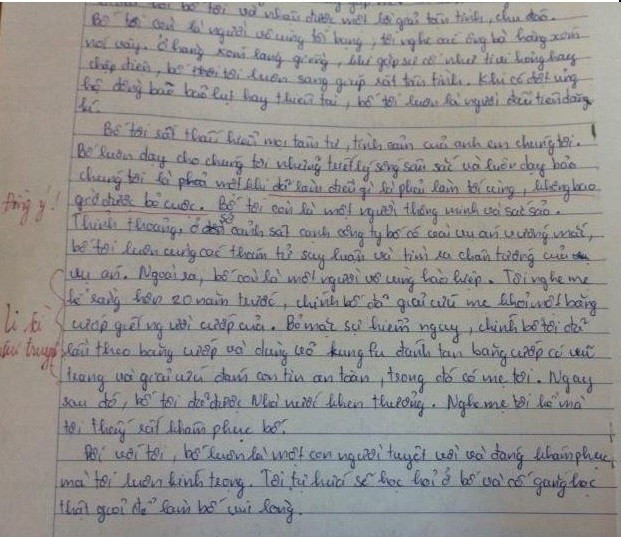 bố tôi và nhận được một lời giải tận tình, chu đáo.
Bố tôi còn là người vô cùng tốt bụng, tôi nghe các ông bà hàng xóm
nói vậy. Ở hàng xóm láng giềng, khi gặp sự cố như tivi hỏng hay
chập điện, bố tôi luôn sang giúp rất tận tình. Khi có đợt ủng
hộ đồng bào bão lụt hay thiên tai, bố tôi luôn là người đầu tiên đăng
kí.
Bố tôi rất thấu hiểu mọi tâm tư, tình cảm của anh em chúng tôi.
Bố luôn dạy cho chúng tôi những triết lý sống sâu sắc và luôn dạy bảo
chúng tôi là phải một khi đã làm điều gì là phải làm tới cùng, không bao
giờ được bỏ cuộc. Bố tôi còn là một người thông minh và sắc sảo.
Đúng ý!
Thỉnh thoảng, ở sở cảnh sát cạnh công ty bố có vài vụ án vướng mắc,
bố tôi luôn cùng các thám tử suy luận và tìm ra chân tướng của
vụ án. Ngoài ra, bố còn là một người vô cùng hào hiệp. Tôi nghe mẹ
kể rằng hơn 20 năm trước, chính bố đã giải cứu mẹ khỏi một băng
cướp giết người cướp của. Bỏ mặc sự hiểm nguy, chính bố tôi đã
lần theo băng cướp và dùng võ kungfu đánh tan băng cướp có vũ
Li kì
như truyện
trang và giải cứu đám con tin an toàn, trong đó có mẹ tôi. Ngay
sau đó, bố tôi đã được Nhà nước khen thưởng. Nghe mẹ tôi kể mà
tôi thấy rất khâm phục bố.
Đối với tôi, bố luôn là một con người tuyệt vời và đáng khâm phục
mà tôi luôn kính trọng. Tôi tự hứa sẽ học hỏi ở bố và cố gắng học
thật giỏi để làm bố vui lòng.